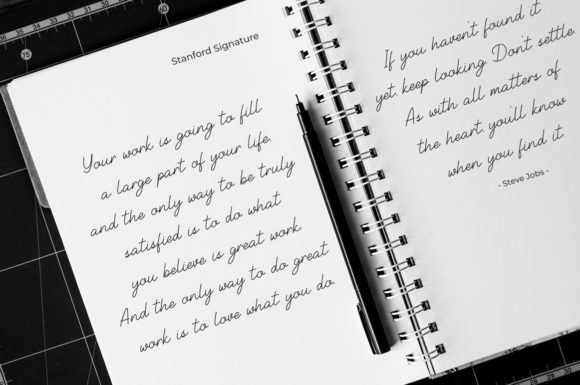 75
60
Stanford Signature
Your work is going to fill
a large part of your life.
and the only way to be truly
satisfied is to do what
you believe is great work.
And the only way to do great
work is to love what you do.
If you haven't found it
yet. keep looking. Don't settle.
As with all matters of
the heart. you'll know
when you find it.
- Steve Jobs -
30